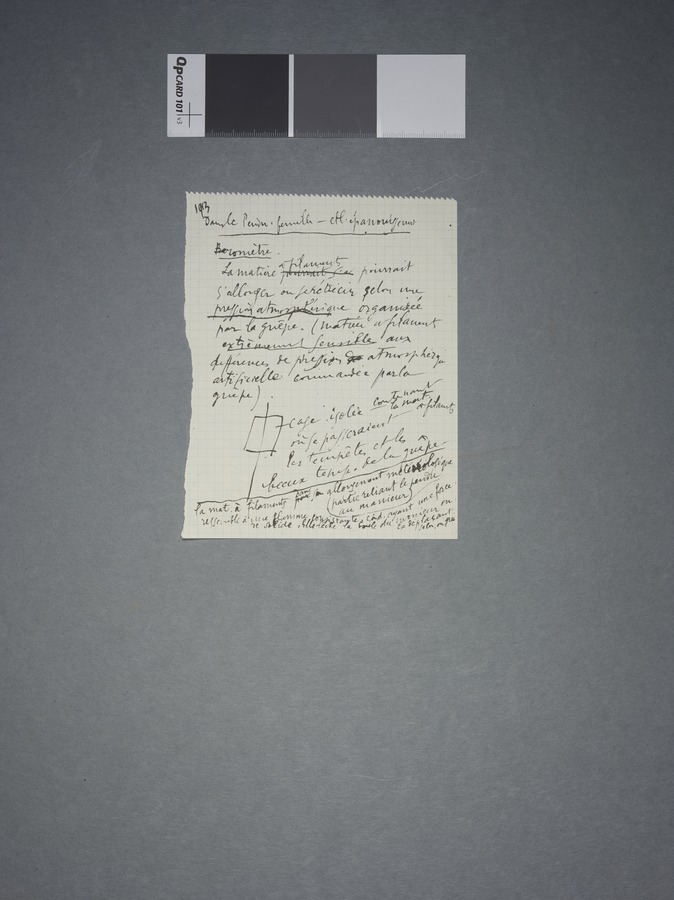 QPCARD 101 v3
1913
Dans le Pendu-femelle — et l'épanouissement
Baromètre.
La matière à filaments pourrait
s'allonger ou se rétrécir selon une
pression atmosphérique organisée
par la guêpe. (matière à filament
extrêmement sensible aux
différences de pression atmosphérique
artificielle commandée par la
guêpe).
cage isolée contenant
la mat. à filament
où se passeraient
les tempêtes et les
beaux temps de la guêpe
La mat. à filaments dans son allongement météorologique
(partie reliant le pendu
au manieur)
ressemble à une flamme c. à d. ayant une force
solide elle lèche la boule du manieur en
la déplaçant